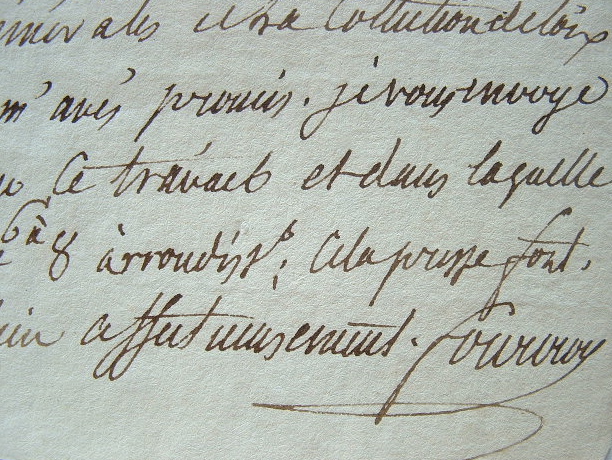 et la Collection de loix
m'avés promis. je vous envoye
Ce travail et dans laquelle
6 à 8 arrondisst; Cela presse fort.
affectueusement. fourcroy